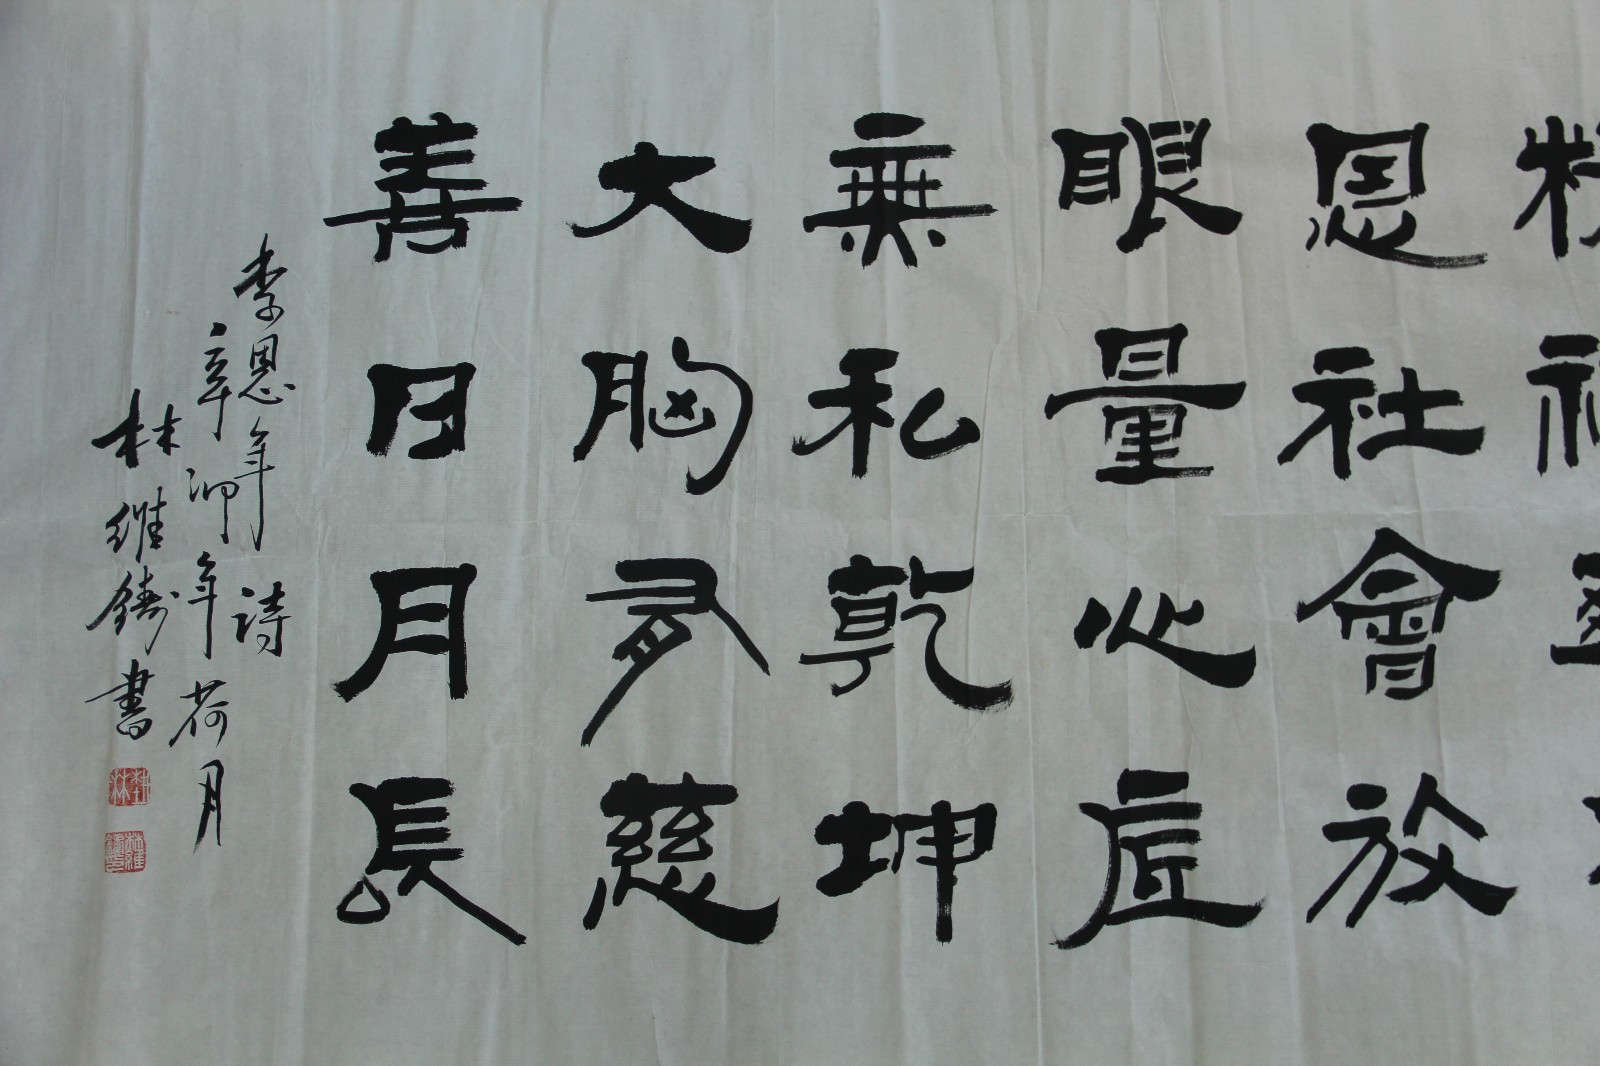 恩社會放
眼量心底
無私乾坤
大胸多慈
善日月長
李恩年詩
辛卯年荷月
林維鑄書